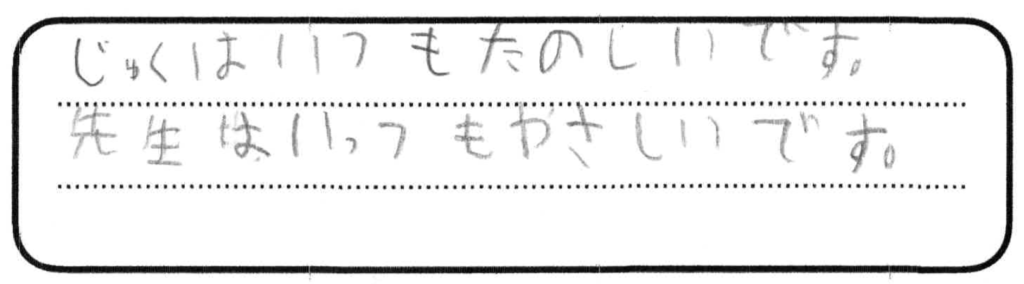 じゅくはいつもたのしいです。
先生はいっつもやさしいです。